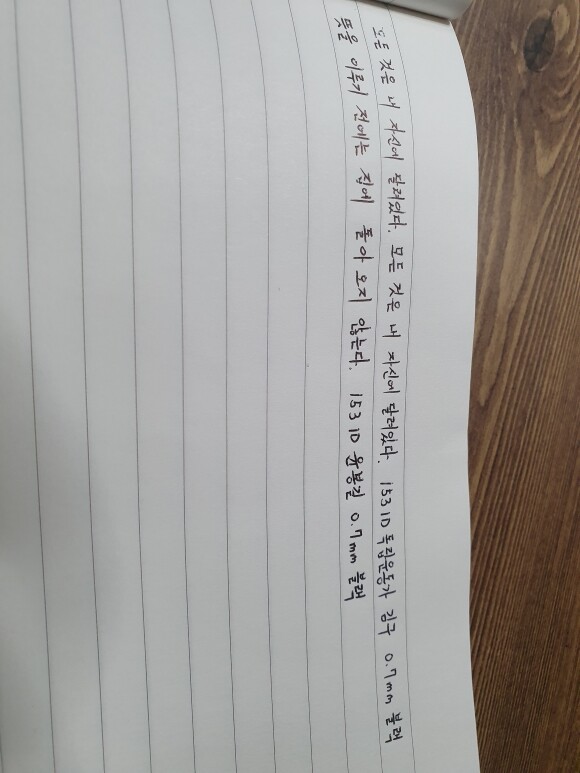 모든 것은 내 자신에 달려있다. 모든 것은 내 자신에 달려있다. 153 ID 독립운동가 김구 0.7mm 블랙
뜻을 이루기 전에는 집에 돌아 오지 않는다. 153 ID 윤봉길 0.7mm 블랙